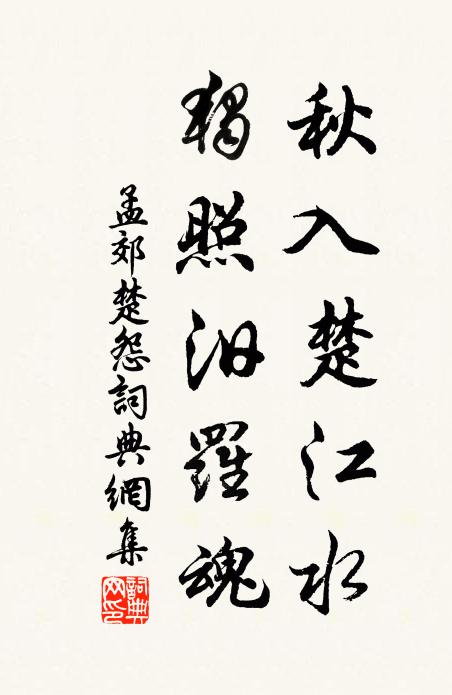 秋入楚江水
獨照汨羅魂
孟郊楚怨詞典網集
詞典網印